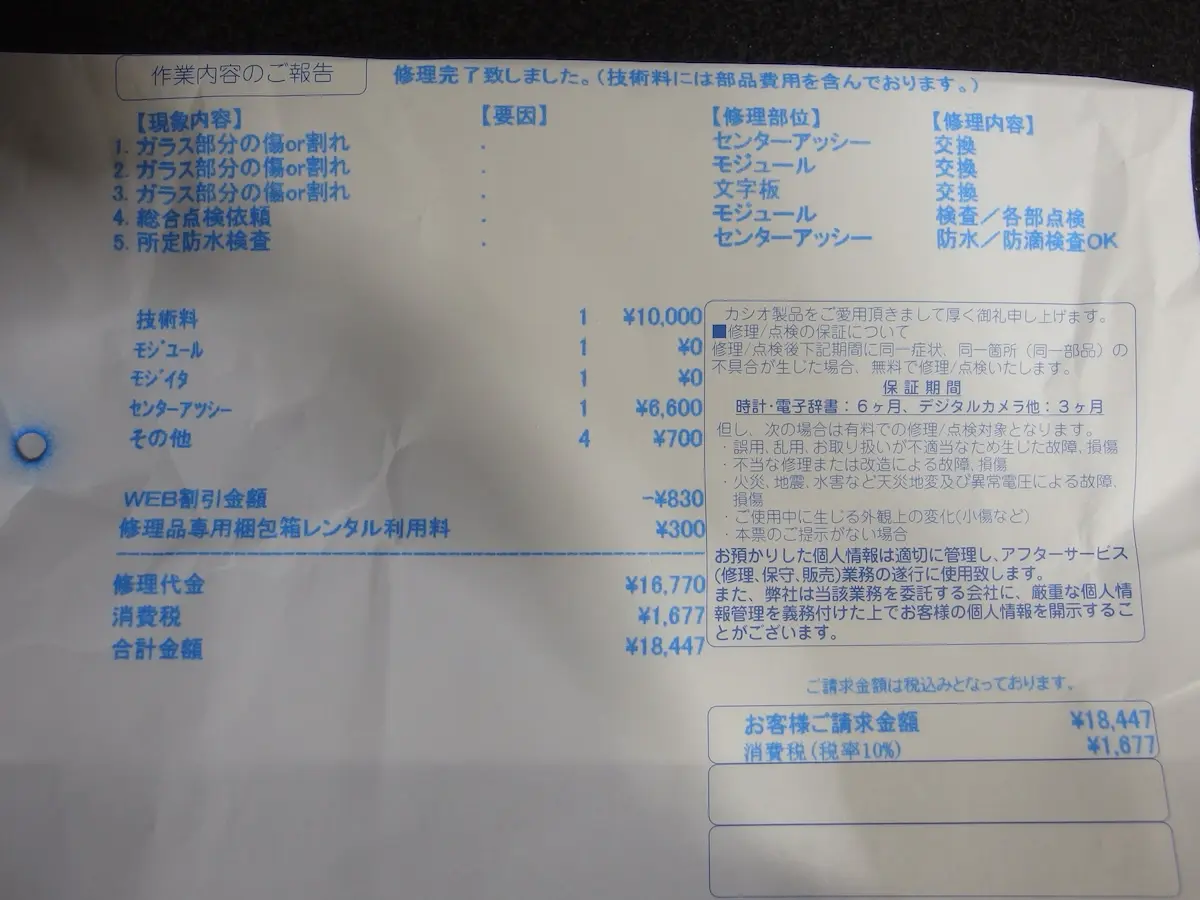 作業内容のご報告 修理完了致しました。(技術料には部品費用を含んでおります。)
【現象内容】 【要因】 【修理部位】 【修理内容】
1. ガラス部分の傷or割れ . センターアッシー 交換
2. ガラス部分の傷or割れ . モジュール 交換
3. ガラス部分の傷or割れ . 文字板 交換
4. 総合点検依頼 . モジュール 検査/各部点検
5. 所定防水検査 . センターアッシー 防水/防滴検査OK
技術料 1 ¥10,000
モジユール 1 ¥0
モジイタ 1 ¥0
センターアツシー 1 ¥6,600
その他 4 ¥700
WEB割引金額 -¥830
修理品専用梱包箱レンタル利用料 ¥300
修理代金 ¥16,770
消費税 ¥1,677
合計金額 ¥18,447
カシオ製品をご愛用頂きまして厚く御礼申し上げます。
■修理/点検の保証について
修理/点検後下記期間に同一症状、同一箇所(同一部品)の
不具合が生じた場合、無料で修理/点検いたします。
保証期間
時計・電子辞書:6ヶ月、デジタルカメラ他:3ヶ月
但し、次の場合は有料での修理/点検対象となります。
・誤用、乱用、お取り扱いが不適当なため生じた故障、損傷
・不当な修理または改造による故障、損傷
・火災、地震、水害など天災地変及び異常電圧による故障、
損傷
・ご使用中に生じる外観上の変化(小傷など)
・本票のご提示がない場合
お預かりした個人情報は適切に管理し、アフターサービス
(修理、保守、販売)業務の遂行に使用致します。
また、弊社は当該業務を委託する会社に、厳重な個人情
報管理を義務付けた上でお客様の個人情報を開示するこ
とがございます。
ご請求金額は税込みとなっております。
お客様ご請求金額 ¥18,447
消費税(税率10%) ¥1,677